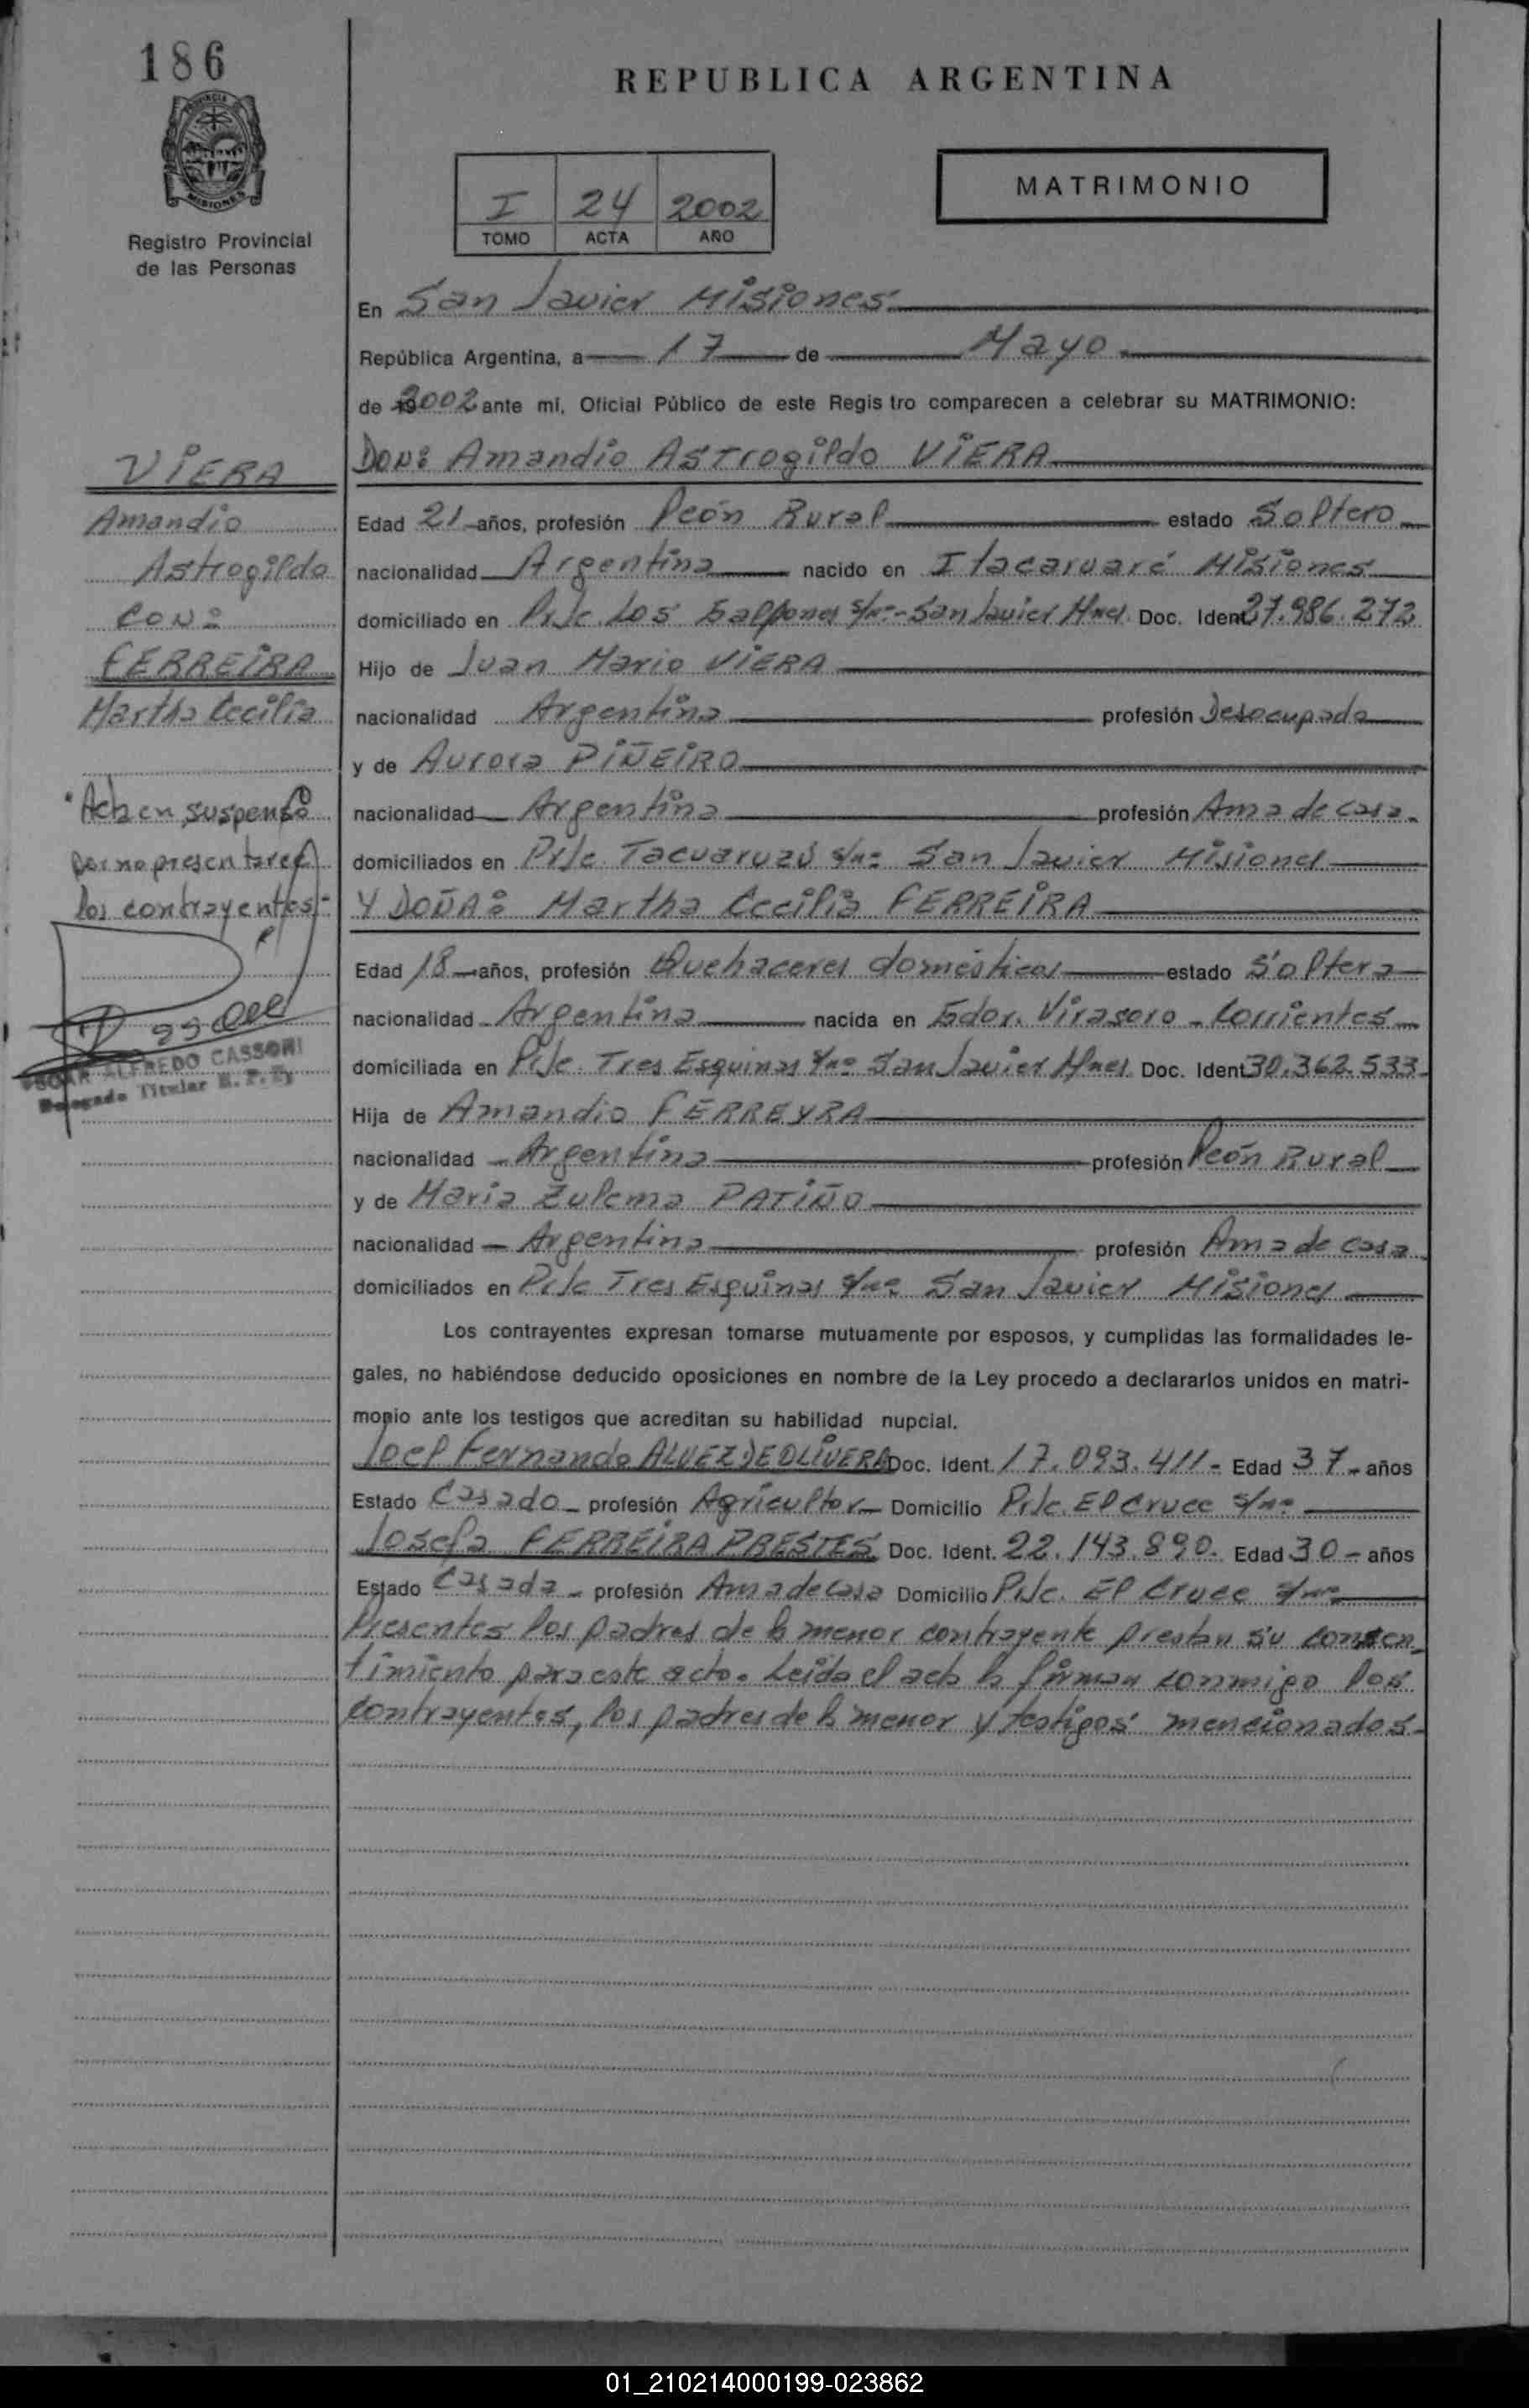 186
REPUBLICA ARGENTINA
PROVINCIA DE
MISIONES
Registro Provincial
de las Personas
I 24 2002
TOMO ACTA AÑO
MATRIMONIO
En San Javier Misiones
República Argentina, a 17 de Mayo
de 2002 ante mí, Oficial Público de este Regis tro comparecen a celebrar su MATRIMONIO:
VIERA
Amandio
Astrogildo
CON:
FERREIRA
Martha Cecilia
Acta en suspenso
por no presentarse
los contrayentes.-
OSCAR ALFREDO CASSONI
Delegado Titular R. P. P.
DON: Amandio Astrogildo VIERA
Edad 21 años, profesión Peón Rural estado Soltero
nacionalidad Argentina nacido en Itacaruaré Misiones
domiciliado en Prje. Los Galpones s/nº- San Javier Mnes. Doc. Ident 27.986.272
Hijo de Juan Mario VIERA
nacionalidad Argentina profesión Desocupado
y de Aurora PIÑEIRO
nacionalidad Argentina profesión Ama de casa.
domiciliados en Prje. Tacuaruzú s/nº San Javier Misiones
Y DOÑA: Martha Cecilia FERREIRA
Edad 18 años, profesión Quehaceres domésticos estado Soltera
nacionalidad Argentina nacida en Gdor. Virasoro - Corrientes
domiciliada en Prje. Tres Esquinas s/nº San Javier Mnes. Doc. Ident 30.362.533.
Hija de Amandio FERREYRA
nacionalidad Argentina profesión Peón Rural
y de María Zulema PATIÑO
nacionalidad Argentina profesión Ama de casa
domiciliados en Prje Tres Esquinas s/nº San Javier Misiones
Los contrayentes expresan tomarse mutuamente por esposos, y cumplidas las formalidades le-
gales, no habiéndose deducido oposiciones en nombre de la Ley procedo a declararlos unidos en matri-
monio ante los testigos que acreditan su habilidad nupcial.
Joel Fernando ALVEZ DE OLIVERA Doc. Ident. 17.093.411- Edad 37 años
Estado Casado profesión Agricultor Domicilio Prje. El Cruce s/nº
Josefa FERREIRA PRESTES Doc. Ident. 22.143.890. Edad 30 años
Estado Casada profesión Ama de casa Domicilio Prje. El Cruce s/nº
Presentes los padres de la menor contrayente prestan su consen-
timiento para este acto. Leída el acta la firman conmigo los
contrayentes, los padres de la menor y testigos mencionados.
01_210214000199-023862